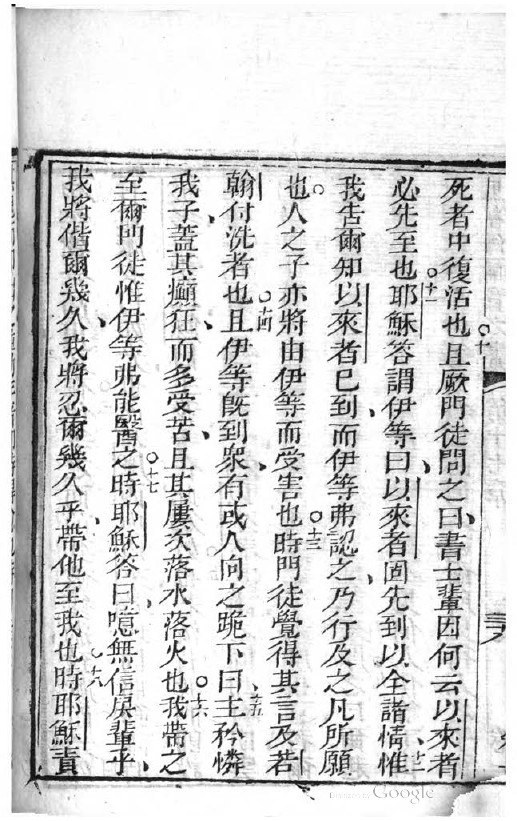 死者中復活也○十且厥門徒問之曰書士輩因何云以來者
必先至也○十一耶穌答謂伊等曰以來者固先到以全諸情○十二惟
我吿爾知以來者已到而伊等弗認之乃行及之凡所願
也○人之子亦將由伊等而受害也○十三時門徒覺得其言及若
翰付洗者也○十四且伊等旣到衆有或人向之跪下曰○十五主矜憐
我子蓋其癲狂而多受苦且其屢次落水落火也○十六我帶之
至爾門徒惟伊等弗能醫之時○十七耶穌答曰噫無信戾輩乎
我將偕爾幾久我將忍爾幾久乎帶他至我也○十八時耶穌責
Digitized by Google